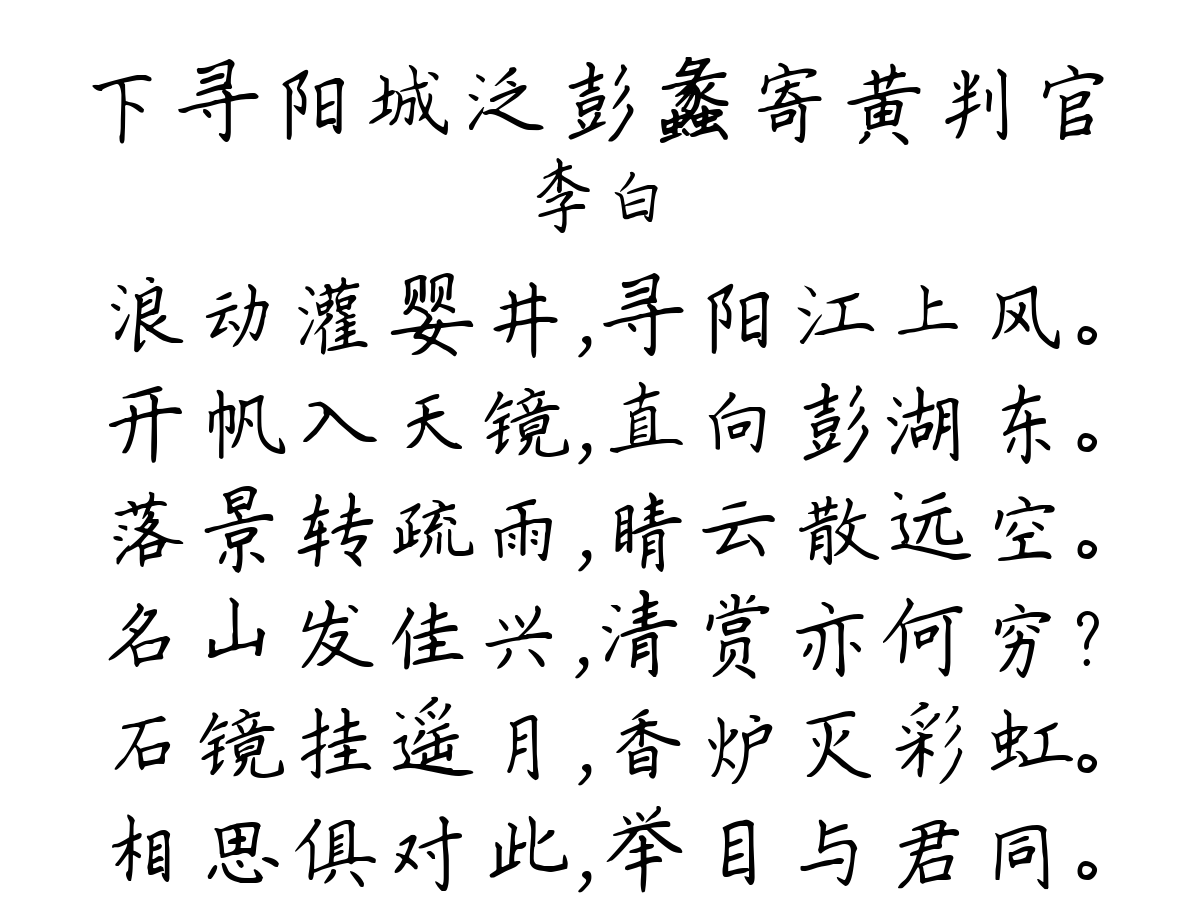 下寻阳城泛彭蠡寄黄判官
李白
浪动灌婴井,寻阳江上风。
开帆入天镜,直向彭湖东。
落景转疏雨,晴云散远空。
名山发佳兴,清赏亦何穷?
石镜挂遥月,香炉灭彩虹。
相思俱对此,举目与君同。